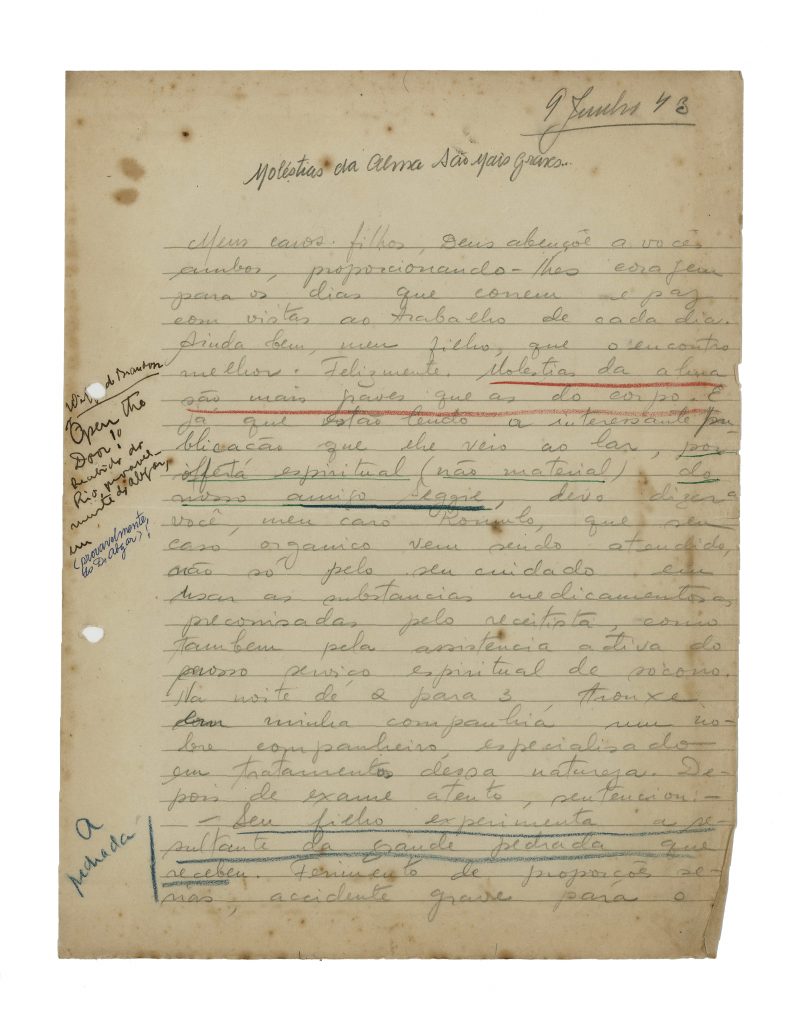 9 Junho 43
Moléstias da Alma São Mais Graves.
Meus caros filhos, Deus abençõe a vocês
ambos, proporcionando-lhes coragem
para os dias que correm e paz
com vistas ao trabalho de cada dia.
Ainda bem, meu filho, que o encontro
melhor. Felizmente. Molestias da alma
são mais graves que as do corpo. E
já que estão lendo a interessante pu-
blicação que lhe veio ao lar, por
offerta espiritual (não material) do
nosso amigo Peggie, devo dizer a
você, meu caro Romulo, que seu
caso organico vem sendo attendido,
não só pelo seu cuidado em
usar as substancias medicamentosas
preconisadas pelo receitista, como
tambem pela assistencia activa do
nosso serviço espiritual de socorro.
Na noite de 2 para 3, trouxe
em minha companhia um no-
bre companheiro, especialisado
em tratamentos dessa natureza. De-
pois de exame atento, sentenciou:-
- Seu filho experimenta a re-
sultante da grande pedrada que
recebeu. Ferimento de proporções sé-
rias, accidente grave para o
Open the
Door!
Recebido do
Rio, provavel-
mente do
em
(provavelmente
do Dr.
A
pedrada